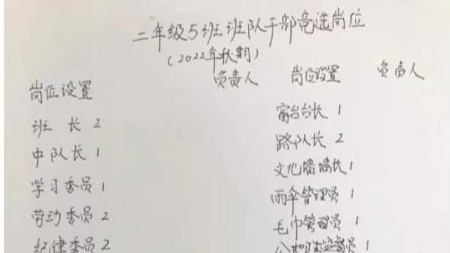 二年级5班班队干部竞选岗位
(2022年秋期)
岗位设置 负责人 岗位设置 负责人
班长 2 窗台台长 1
中队长 1 路队长 2
学习委员 1 文化墙墙长 1
劳动委员 2 雨伞管理员 1
纪律委员 2 毛巾管理员 1